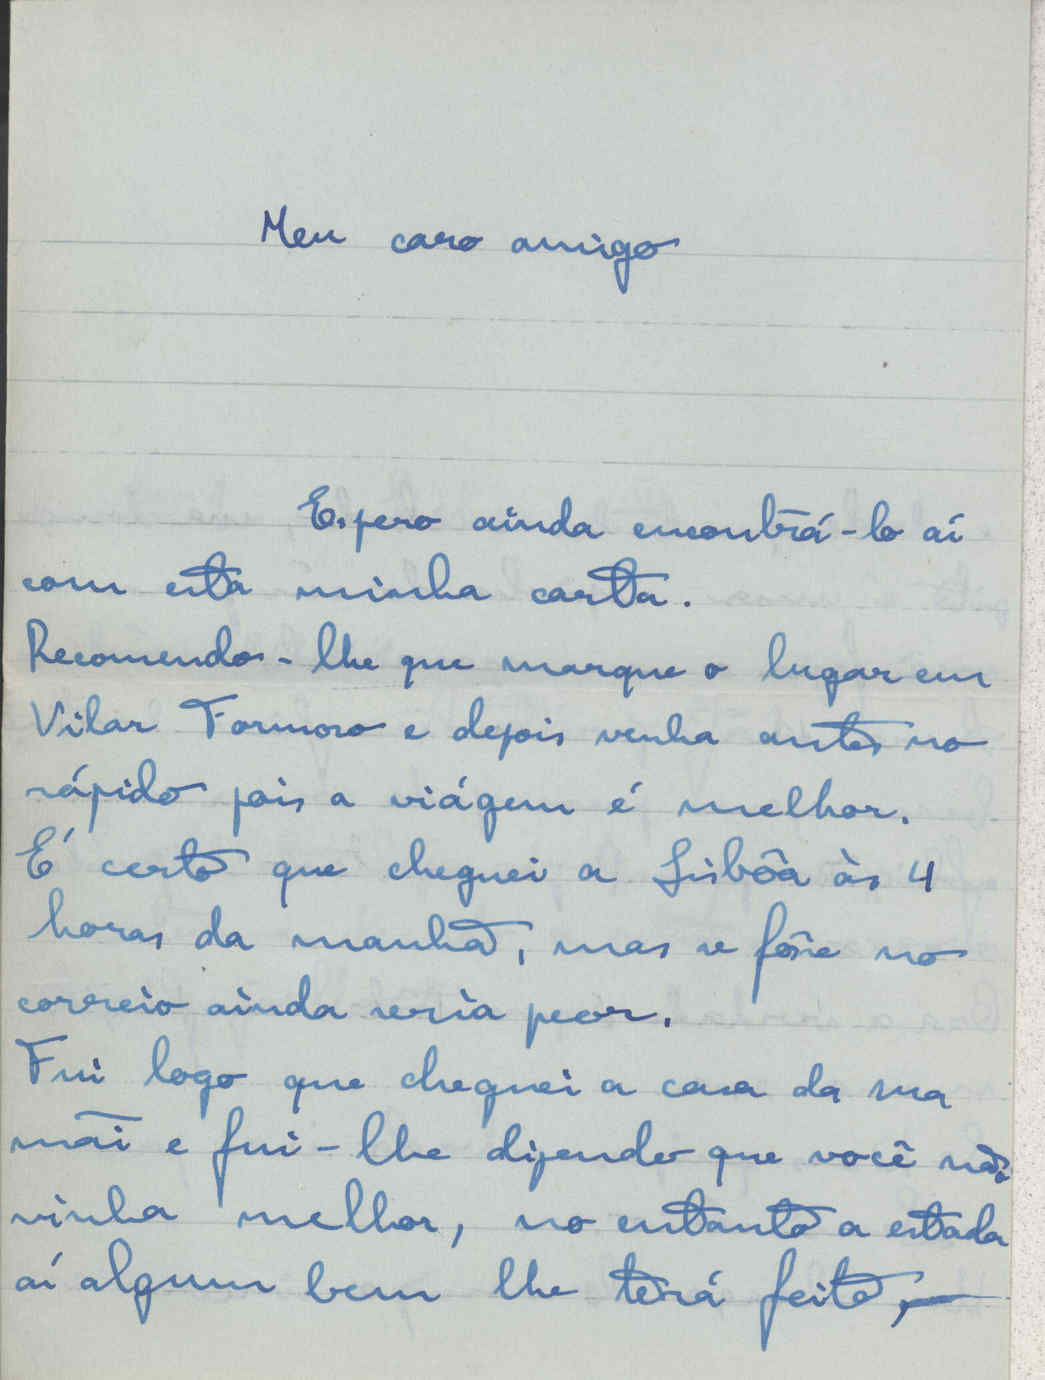 Meu caro amigo
Espero ainda encontrá-lo aí
com esta minha carta.
Recomendo-lhe que marque o lugar em
Vilar Formoso e depois venha antes no
rápido pois a viágem é melhor.
É certo que cheguei a Lisbôa às 4
horas da manhã, mas se fôsse no
correio ainda seria peor.
Fui logo que cheguei a casa da sua
mãi e fui-lhe dizendo que você não
vinha melhor, no entanto a estada
aí algum bem lhe terá feito,—